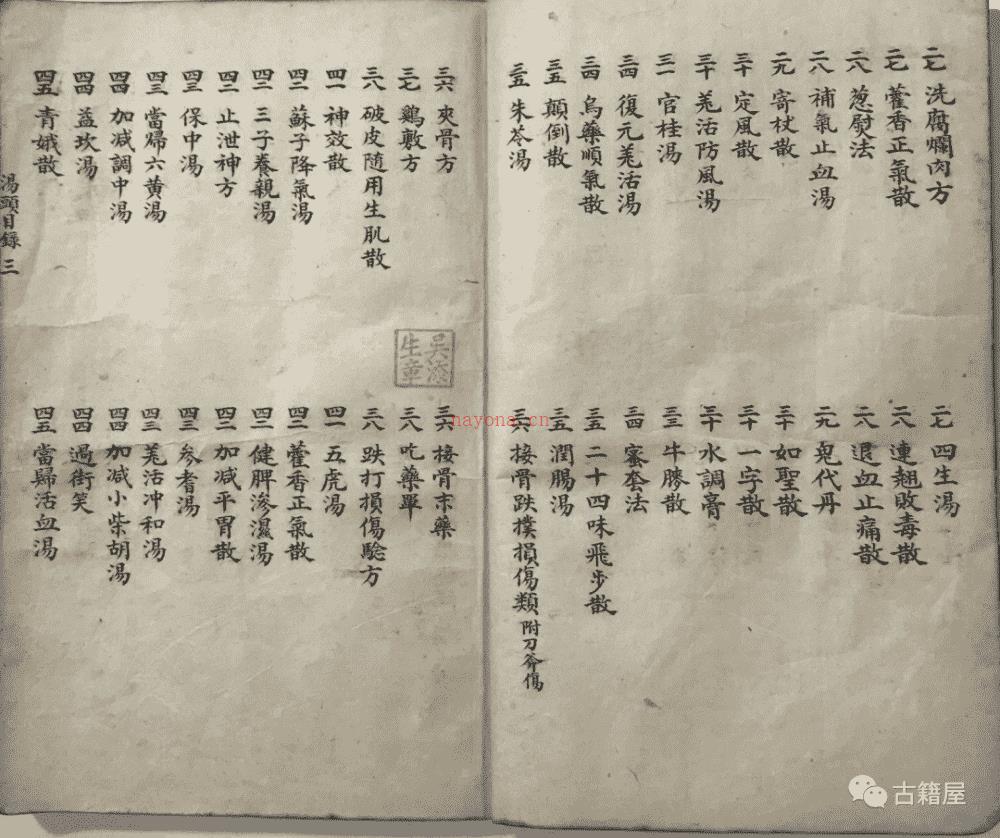 二七 洗腐爛肉方
二七 四生湯
二七 藿香正氣散
二八 連翹敗毒散
二八 葱熨法
二八 退血止痛散
二八 補氣止血湯
二九 鬼代丹
二九 寄杖散
三十 如聖散
三十 定風散
三十 一字散
三十 羗活防風湯
三十 水調膏
三一 官桂湯
三三 牛膝散
三四 復元羗活湯
三四 蜜套法
三四 烏藥順氣散
三五 二十四味飛步散
三五 顛倒散
三五 潤腸湯
三五 朱苓湯
三六 接骨跌撲損傷類 附刀斧傷
三六 夾骨方
三六 接骨末藥
三七 鷄敷方
三八 吃藥單
三八 破皮隨用生肌散
三八 跌打損傷驗方
四一 神效散
四一 五虎湯
四二 蘇子降氣湯
四二 藿香正氣散
四二 三子養親湯
四二 健脾滲濕湯
四二 止泄神方
四二 加減平胃散
四三 保中湯
四三 參耆湯
四三 當歸六黄湯
四三 羗活冲和湯
四四 加減調中湯
四四 加減小柴胡湯
四四 益坎湯
四四 過街笑
四五 青娥散
四五 當歸活血湯
湯頭目錄 三
吳添生章
nayona.cn
古籍屋